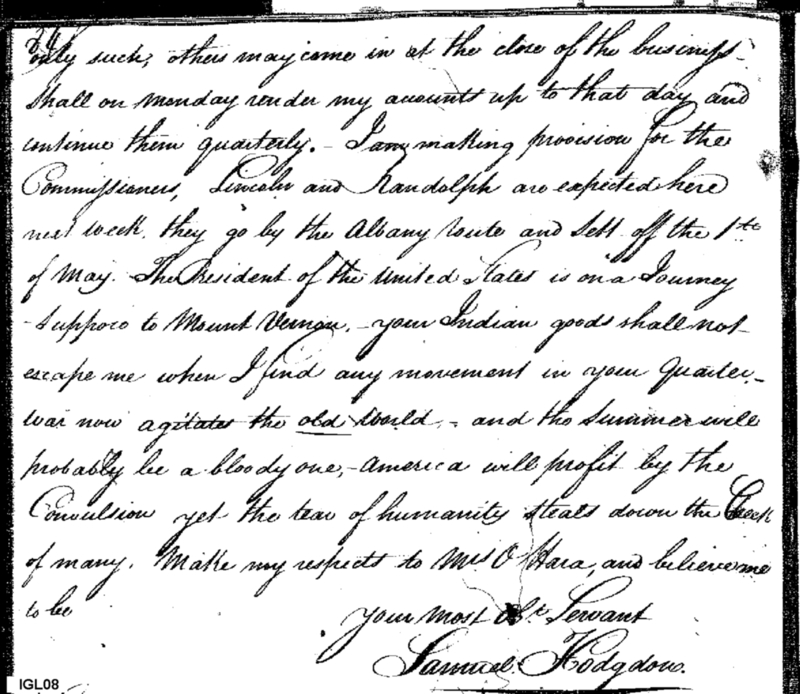 only such, others may come in at the close of the business-
shall on monday render my accounts up to that day and
continue them quarterly. - I am making provision for the
Commissioners, Lincoln and Randolph are expected here
next week. they go by the Albany route and sett off the 1st
of May. The President of the United States is on a Journey
- suppose to Mount Vernon. - your Indian goods shall not
escape me when I find any movement in your Quarter. -
war now agitates the old World, - and the Summer will
probably be a bloody one, - America will profit by the
Convulsion yet the tear of humanity steals down the Cheek
of many. Make my respects to Mrs O Hara, and believe me
to be
your most Obt Servant
Samuel Hodgdon.
IGL08